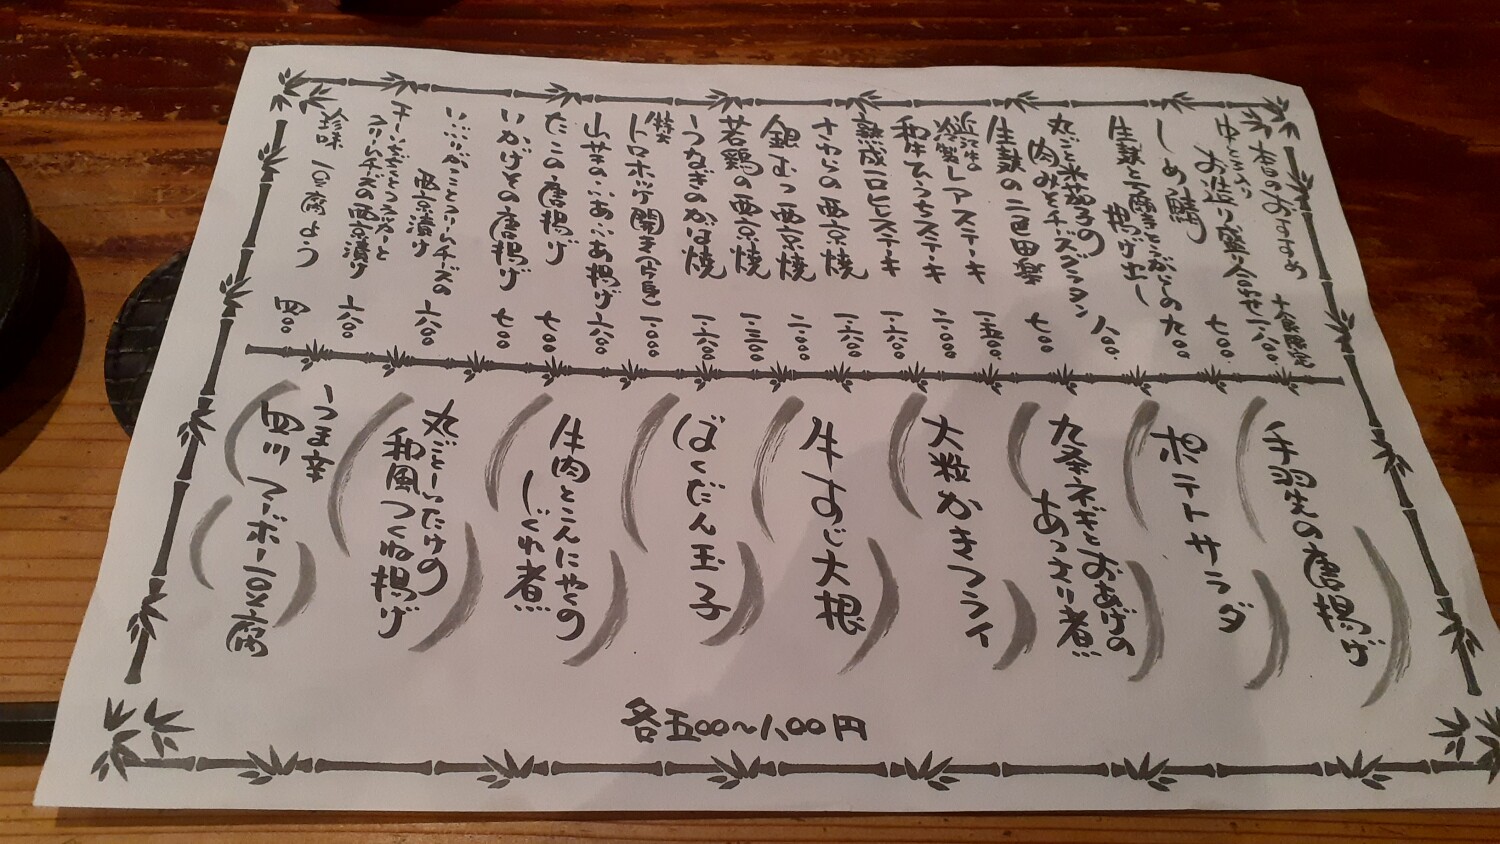 本日のおすすめ 十食限定
中とろ入り
お造り盛り合わせ 一、六〇〇
しめ鯖 七〇〇
生麩と豆腐とひがしの
揚げ出し 九〇〇
丸ごと米茄子の
肉みそチーズグラタン 八〇〇
生麩の二色田楽 七〇〇
近江牛の
炭製レアステーキ 一、五〇〇
和牛ひうちステーキ 二、〇〇〇
熟成一口ヒレステーキ 一、八〇〇
さわらの西京焼 一、六〇〇
銀むつ西京焼 二、〇〇〇
若鶏の西京焼 一、三〇〇
うなぎのかば焼 一、六〇〇
特大
トロホッケ開き(片身) 一、〇〇〇
山芋のふあふあ揚げ 六〇〇
たこの唐揚げ 七〇〇
いかげその唐揚げ 七〇〇
いぶりがっことクリームチーズの
西京漬け 六〇〇
クリームチーズの西京漬け 六〇〇
珍味 豆腐よう 四〇〇
手羽先の唐揚げ
ポテトサラダ
九条ネギとおあげの
あっさり煮
大粒かきフライ
牛すじ大根
ばくだん玉子
牛肉とこんにゃくの
しぐれ煮
丸ごとしいたけの
和風つくね揚げ
うま辛
四川マーボー豆腐
各五〇〇〜八〇〇円